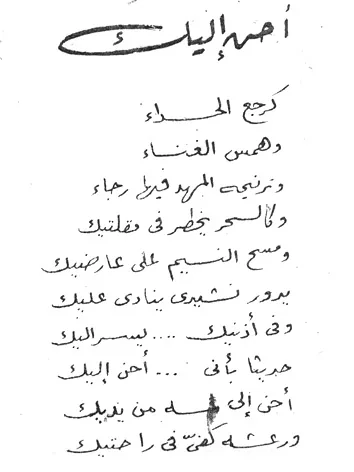 أحن إليك
كرجع الحداء
وهمس الغناء
وترنيمه المهد فيها رجاء
وكالسحر يخطر فى مقلتيك
ومسح النسيم على عارضيك
يدور نشيدى ينادى عليك
وفى أذنيك .... ليسر إليك
حديثا بأنى ... أحن إليك
أحن إلى لمسه من يديك
ورعشه كفى فى راحتيك